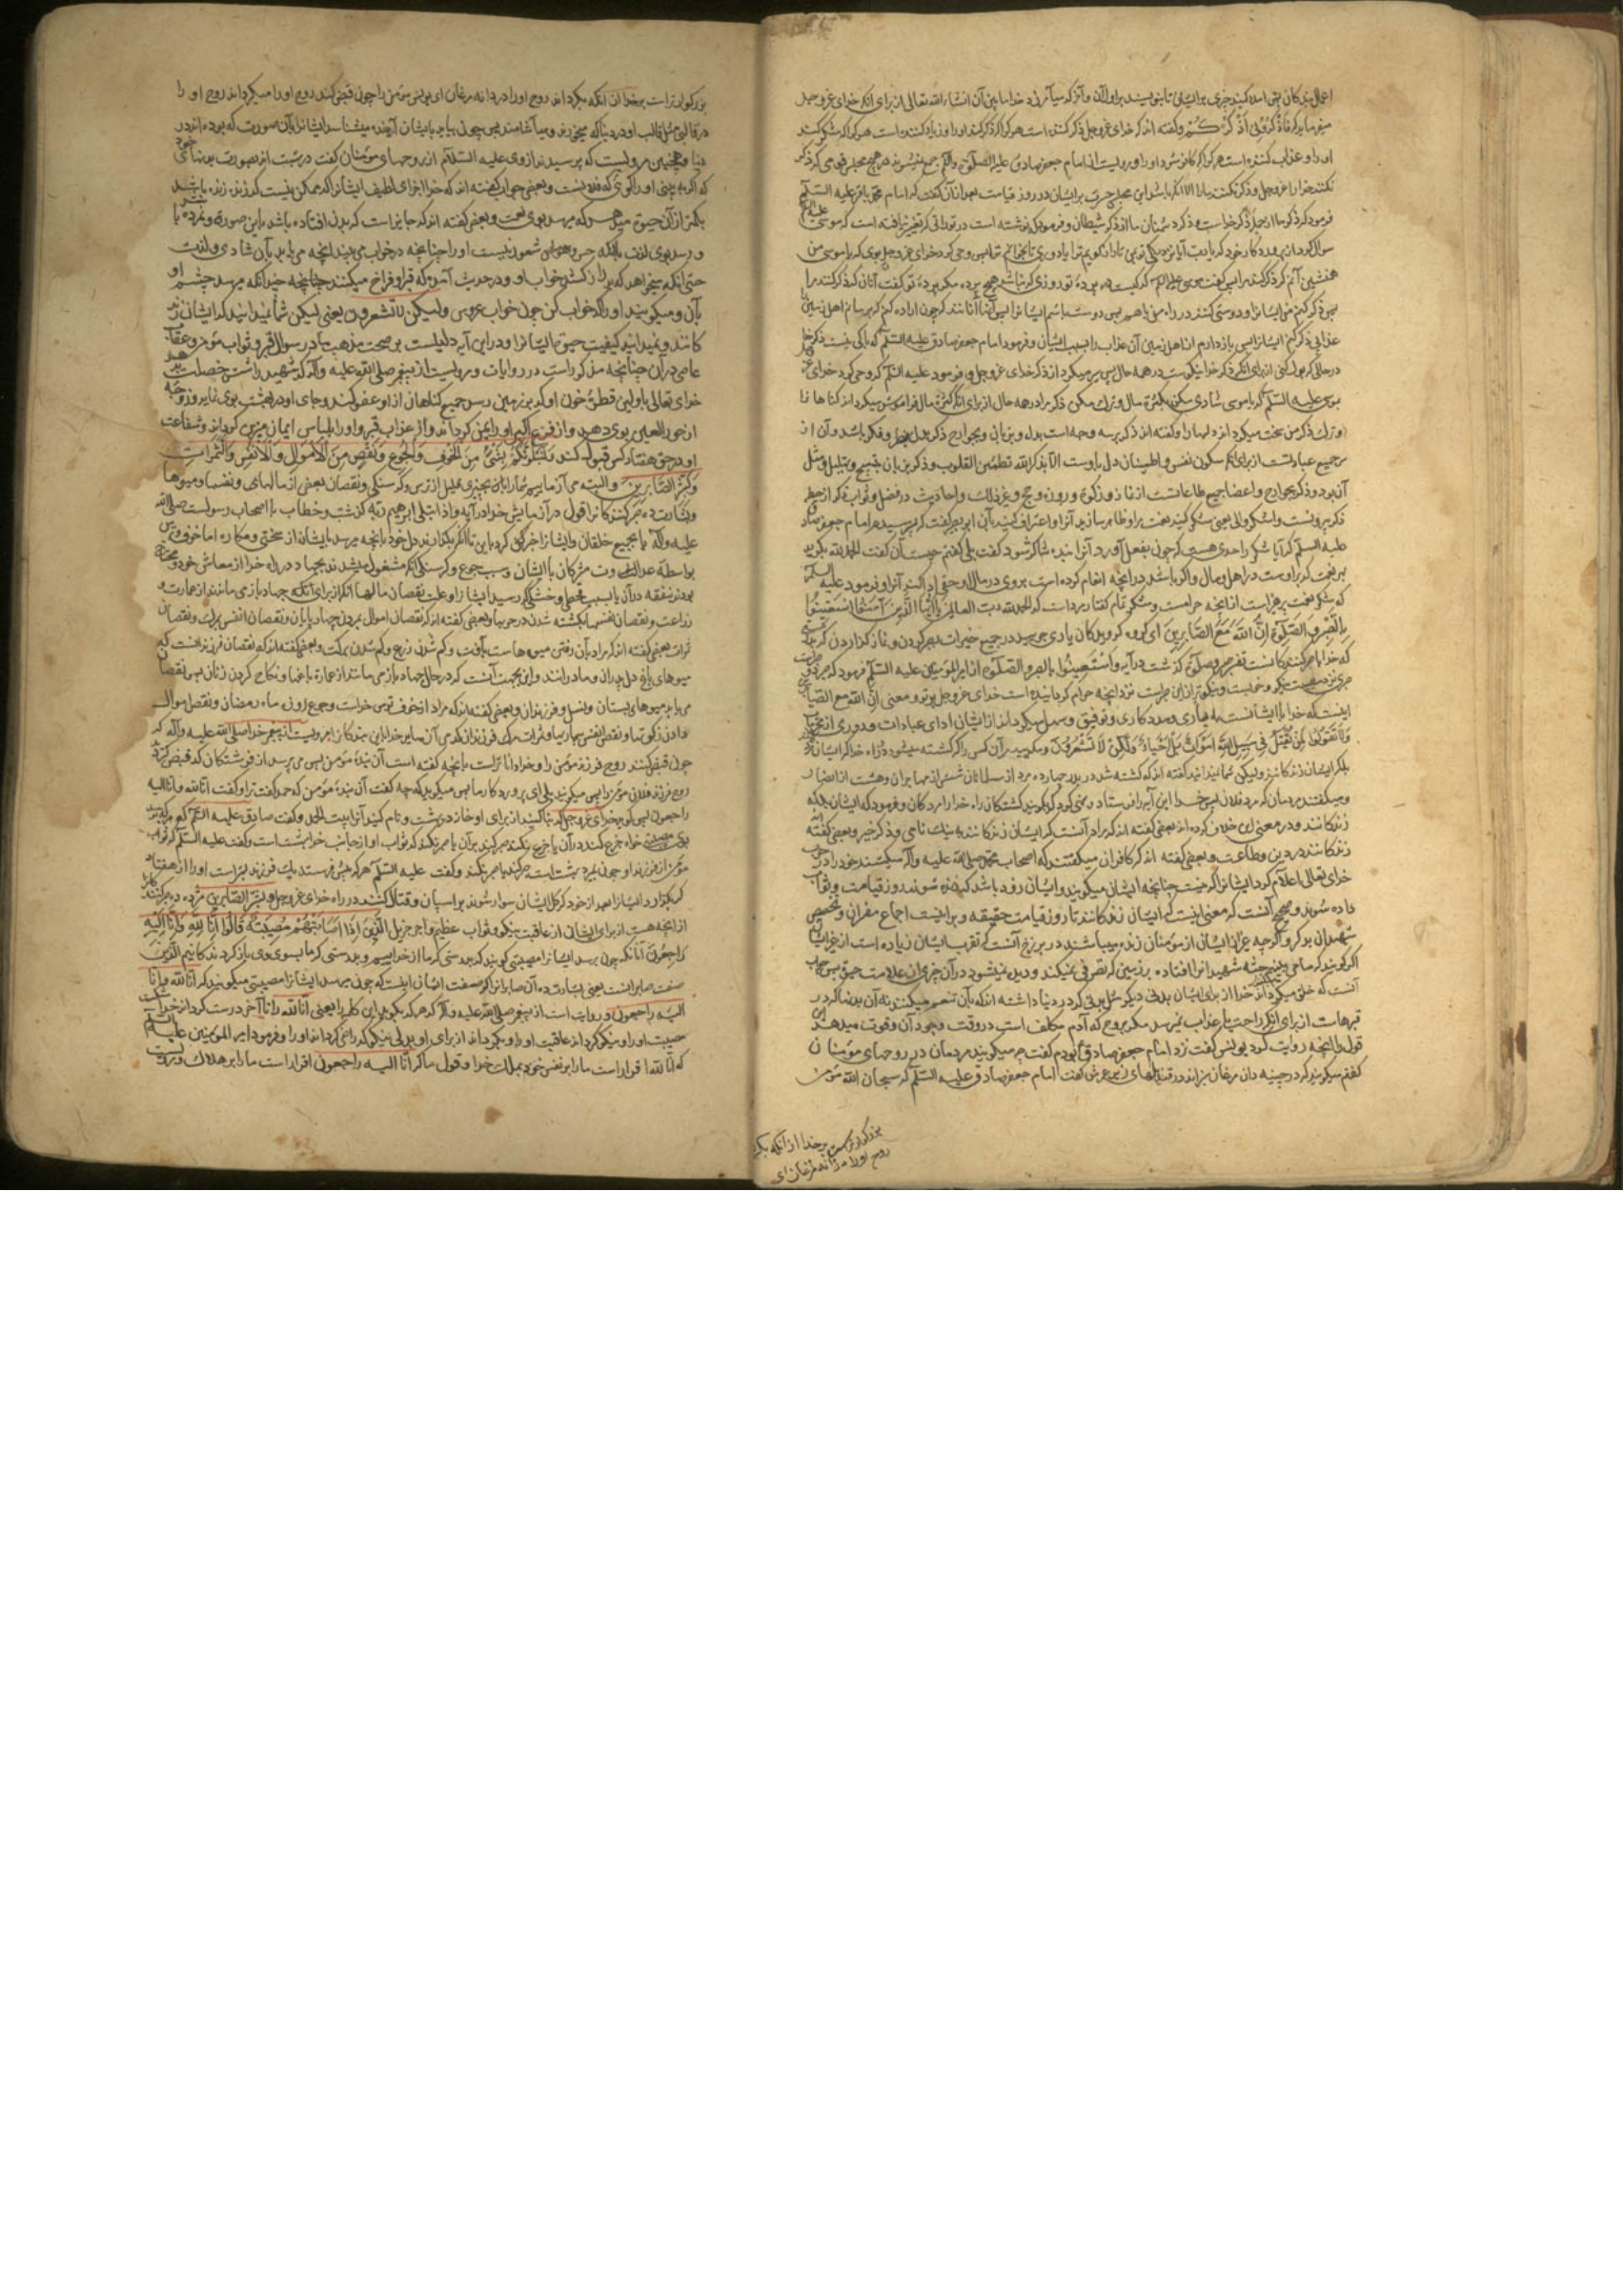 اعمال بندگان
میفرماید که فاذکرونی اذکرکم و گفته اند که خدای عزوجل ذکر کننده است هر کرا که ذکر کند او را و زیاد کننده است هر کرا که شکر کند
او را و عذاب کننده است هر کرا که کافر شود او را و مرویست از امام جعفر صادق علیه الصلوة والسلم که جمع نشوند در هیچ مجلس قومی که ذکر
نکنند خدا را عزوجل و ذکر نکنند ما را الا آنکه باشد این مجلس حسرت بر ایشان در روز قیامت بعد از آن گفت که امام محمد باقر علیه السلم
فرمود که ذکر ما از جمله ذکر خداست و ذکر دشمنان ما از ذکر شیطان و فرمود که نوشته است در توراتی که تغییر نیافته است که موسی علیه السلم
سوال کرد از پروردگار خود که یا رب آیا نزدیکی تو بمن تا راز گویم ترا یا دوری تا بخوانم ترا پس وحی کرد خدای عزوجل بوی که یا موسی من
همنشین آنم که ذکر کند مرا پس گفت موسی علیه السلم که کیست در پرده تو در روزی که نباشد هیچ پرده مگر پرده تو گفت آنان که ذکر کنند مرا
پس ذکر کنم من ایشانرا و دوستی کنند در راه من با هم پس دوست باشم ایشانرا پس آنها آنانند که چون اراده کنم که برسانم اهل زمین را
عذابی ذکر کنم ایشانرا پس باز دارم از اهل زمین آن عذاب را بسبب ایشان و فرمود امام جعفر صادق علیه السلم که باکی نیست ذکر خدا
در حالی که بول کنی از برای آنکه ذکر خدا نیکوست در همه حال پس
موسی علیه السلم که یا موسی شادی مکن بکثرة مال و ترک مکن ذکر مرا در همه حال از برای آنکه کثرة مال فراموش میگرداند گناها نرا
و ترک ذکر من سخت میگرداند دلها را و گفته اند ذکر بر سه وجه است بدل و بزبان و بجوارح ذکر بدل
جمیع عبادتست از برای آنکه سکون نفس و اطمینان دل باوست الا بذکر الله تطمئن القلوب و ذکر بزبان تسبیح و تهلیل و مثل
آن بود و ذکر بجوارح و اعضا جمیع طاعاتست از نماز و زکوة و روزه و حج و غیر ذلک و احادیث در فضل و ثواب ذکر از حیطه
ذکر بیرونست واشکروا لی یعنی شکر کنید نعمت مرا و ظاهر سازید آنرا و اعتراف کنید بآن ابو بصیر گفت که پرسیدم امام جعفر صادق
علیه السلم که آیا شکر را حدی هست که چون بفعل آورد آنرا بنده شاکر شود گفت بلی گفتم چیست آن گفت الحمد لله بگوید
بر نعمت که بر اوست در اهل و مال و اگر باشد در آنچه انعام کرده است بر وی در مال او حقی ادا کند آنرا و فرمود علیه السلم
که شکر نعمت پرهیز است از آنچه حرامست و شکر تمام گفتار مرد است که الحمد لله رب العالمین یا ایها الذین آمنوا استعینوا
بالصبر والصلوة ان الله مع الصابرین ای گروه گرویدگان یاری جویید در جمیع خیرات بصبر کردن و نماز گذاردن
که خدا با صبر کنندگانست تفسیر صبر و صلوة گذشت در آیه واستعینوا بالصبر والصلوة از امیر المؤمنین علیه السلم فرمود که صبر دو
صبر نزد مصیبت نیکو و خوبست و نیکوتر ازین صبر است نزد آنچه حرام گردانیده است خدای عزوجل بر تو و معنی ان الله مع الصابرین
اینست که خدا با ایشانست به یاری و مددکاری و توفیق و سهل میگرداند از ایشان ادای عبادات و دوری از محرمات
ولا تقولوا لمن یقتل فی سبیل الله اموات بل احیاء ولکن لا تشعرون و مگویید مر آن کس را که کشته میشود در راه خدا که ایشان مردگانند
بلکه ایشان زندگانند و لیکن نمیدانید گفته اند که کشته شد در بدر چهارده مرد از مسلمانان شش از مهاجران و هشت از انصار
و میگفتند مردمان که مرد فلان پس خدا این آیه را فرستاد و نهی کرد که نگویند کشتگان راه خدا را مردگان و فرمود که ایشان بلکه
زندگانند و در معنی این خلاف کرده اند بعضی گفته اند که مراد آنست که ایشان زندگانند به نیک نامی و ذکر خیر و بعضی گفته اند
زندگانند در دین و طاعت و بعضی گفته اند که کافران میگفتند که اصحاب محمد صلی الله علیه وآله میکشند خود را در حرب
خدای تعالی اعلام کرد ایشانرا که نیست چنانچه ایشان میگویند و ایشان زود باشد که زنده شوند روز قیامت و ثواب
داده شوند و صحیح آنست که معنی اینست که ایشان زندگانند تا روز قیامت حقیقة و برینست اجماع مفسران و تخصیص
شهیدان بذکر و اگرچه غیر ایشان از مؤمنان زنده میباشند در برزخ آنست که تقرب ایشان زیاده است از غیر ایشان
اگر گویند که ما می بینیم جثه شهیدانرا افتاده بر زمین که تصرفی نمیکند و دیده نمیشود در آن چیزی از علامت حیوة پس جواب
آنست که خلق میگرداند خدا از برای ایشان بدنی دیگر مثل بدنی که در دنیا داشته اند که بآن تنعم میکنند نه آن بدنها که در
قبرهاست از برای آنکه راحت یا عذاب نمیرسد مگر بروح که آدم مکلف است در وقت وجود آن و قوت میدهد این
قول را آنچه روایت کرد یونس گفت نزد امام جعفر صادق بودم گفت چه میگویند مردمان در روحهای مؤمنان
گفتم میگویند که در چینه دان مرغان سبزاند در قندیلهای زیر عرش گفت امام جعفر صادق علیه السلم که سبحان الله مؤمن
بزرگوارتر است بر خدا از آنکه بگرداند
روح او را در چینه دان مرغان ای
بزرگوارتر است بر خدا از آنکه بگرداند روح او را در چینه دانه مرغان ای یونس مؤمن را چون قبض کنند روح او را میگرداند روح او را
در قالبی مثل قالب او در دنیا که میخورند و میآشامند پس چون بیاید بایشان آینده میشناسد ایشانرا بآن صورت که بوده اند در
دنیا و همچنین مرویست که پرسیدند از وی علیه السلام از روحهای مؤمنان گفت در بهشت اند بصورت بدنهای خود
که اگر به بینی او را گویی که فلانیست و بعضی جواب گفته اند که خدا اجزای لطیف ایشانرا که ممکن نیست که زنده باشد
بکمتر از آن حیوة میدهد که میرسد بوی نعمت و بعضی گفته اند که جایز است که بدن افتاده باشد باین صورت و نمرده باشد
و رسد بوی لذت با آنکه حس و شعور نیست او را چنانچه در خواب می بیند آنچه می یابد بآن شادی و لذت
حتی آنکه میخواهد که دراز کشد خواب او و در حدیث آمده که قبر او فراخ میکنند چنانچه چندانکه میرسد چشم او
بآن و میگویند او را که خواب کن چون خواب عروس ولیکن لا تشعرون یعنی لیکن شما نمیدانید که ایشان زنده
گانند و نمیدانید کیفیت حیوة ایشانرا و در این آیه دلیلست بر صحت مذهب ما در سوال قبر و ثواب مؤمن و عقاب
عاصی در آن چنانچه مذکور است در روایات و مرویست از پیغمبر صلی الله علیه وآله که شهید را شش خصلت بدهد
خدای تعالی باولین قطره خون او که بر زمین رسد جمیع گناهان از او عفو کند و جای او در بهشت بوی نماید و زوجه
از حور العین بوی دهد و از فزع اکبر او را ایمن گرداند و از عذاب قبر و او را بلباس ایمان مزین گرداند و شفاعت
او در حق هفتاد کس قبول کند ولنبلونکم بشیء من الخوف والجوع ونقص من الاموال والانفس والثمرات
وبشر الصابرین و البته می آزماییم شما را بچیزی قلیل از ترس و گرسنگی و نقصان بعضی از مالهای و نفسها و میوها
و بشارت ده صبر کنندگانرا قول در آزمایش خدا در آیه واذ ابتلی ابرهیم ربه گذشت و خطاب با اصحاب رسولست صلی الله
علیه وآله یا بجمیع خلقان
بواسطه عداوت مشرکان با ایشان و سبب جوع و گرسنگی آنکه مشغول میشدند بجهاد در راه خدا از معاش خود و محتاج
بودند بنفقه در آن یا بسبب قحطی و خشکی که رسید ایشانرا و علت نقصان مالها آنکه از برای آنکه جهاد باز می ماندند از عمارت و
زراعت و نقصان نفسها بکشته شدن در حربها و بعضی گفته اند که نقصان اموال بمردن چهارپایان و نقصان انفس بمرگ و نقصان
ثمرات بعضی گفته اند که مراد بآن رفتن میوه هاست بآفت و کم شدن زرع و کم شدن برکت و بعضی گفته اند که نقصان فرزندانست که
میوهای باغ دل پدران و مادرانند و این بجهت آنست که در حال جهاد باز می مانند از عمارة باغها و نکاح کردن زنان پس نقصان
می یابد میوهای بستان و نسل و فرزندان و بعضی گفته اند که مراد از خوف ترس خداست و جوع روزه ماه رمضان و نقص اموال
دادن زکوتها و نقص انفس بیماریها و ثمرات مرگ فرزندان مرویست از پیغمبر خدا صلی الله علیه وآله که
چون قبض کنند روح فرزند مؤمن را و خدا دانا تر است بآنچه گفته است آن بنده مؤمن پس می پرسد از فرشتگان که قبض کردید
روح فرزند فلان مؤمن را پس میگویند بلی ای پروردگار ما پس میگوید که چه گفت آن بنده مؤمن که حمد گفت ترا و گفت انا لله وانا الیه
راجعون پس گوید خدای عزوجل که بنا کنید از برای او خانه در بهشت و نام کنید آنرا بیت الحمد و گفت صادق علیه السلم
مصیبت خواه جزع کند در آن یا جزع نکند صبر کند بر آن یا صبر نکند که ثواب او از جانب خدا بهشت است و گفت علیه السلم که ثواب
مؤمن از فرزند او چون بمیرد بهشت است صبر کند یا صبر نکند و گفت علیه السلم هر که پیش فرستد یک فرزند بهتر است او را از هفتاد
که بگذارد ایشانرا بعد از خود که کل ایشان سوار شوند بر اسپان و قتال کنند در راه خدای عزوجل وبشر الصابرین مژده ده صبر کنندگانرا
از آنچه هست از برای ایشان از عاقبت نیکو و ثواب عظیم و اجر جزیل الذین اذا اصابتهم مصیبة قالوا انا لله وانا الیه
راجعون آنانکه چون برسد ایشانرا مصیبتی گویند که بدرستی که ما از خداییم و بدرستی که ما بسوی وی بازگردندگانیم الذین
صفت صابرانست یعنی بشارت ده آن صابرانرا که صفت ایشان اینست که چون میرسد ایشانرا مصیبتی میگویند که انا لله وانا
الیه راجعون و روایت است از پیغمبر صلی الله علیه وآله که هر که بگوید این کلمه را یعنی انا لله را تا آخر درست گرداند خدا شکست
مصیبت او را و نیکو گرداند عاقبت او را و بگرداند از برای او بدلی نیکو که راضی گرداند او را و فرمود امیر المؤمنین علیه السلم
که انا لله اقرار است ما را بر نفس خود بملک خدا و قول ما که انا الیه راجعون اقرار است ما را بر هلاک و نیستی